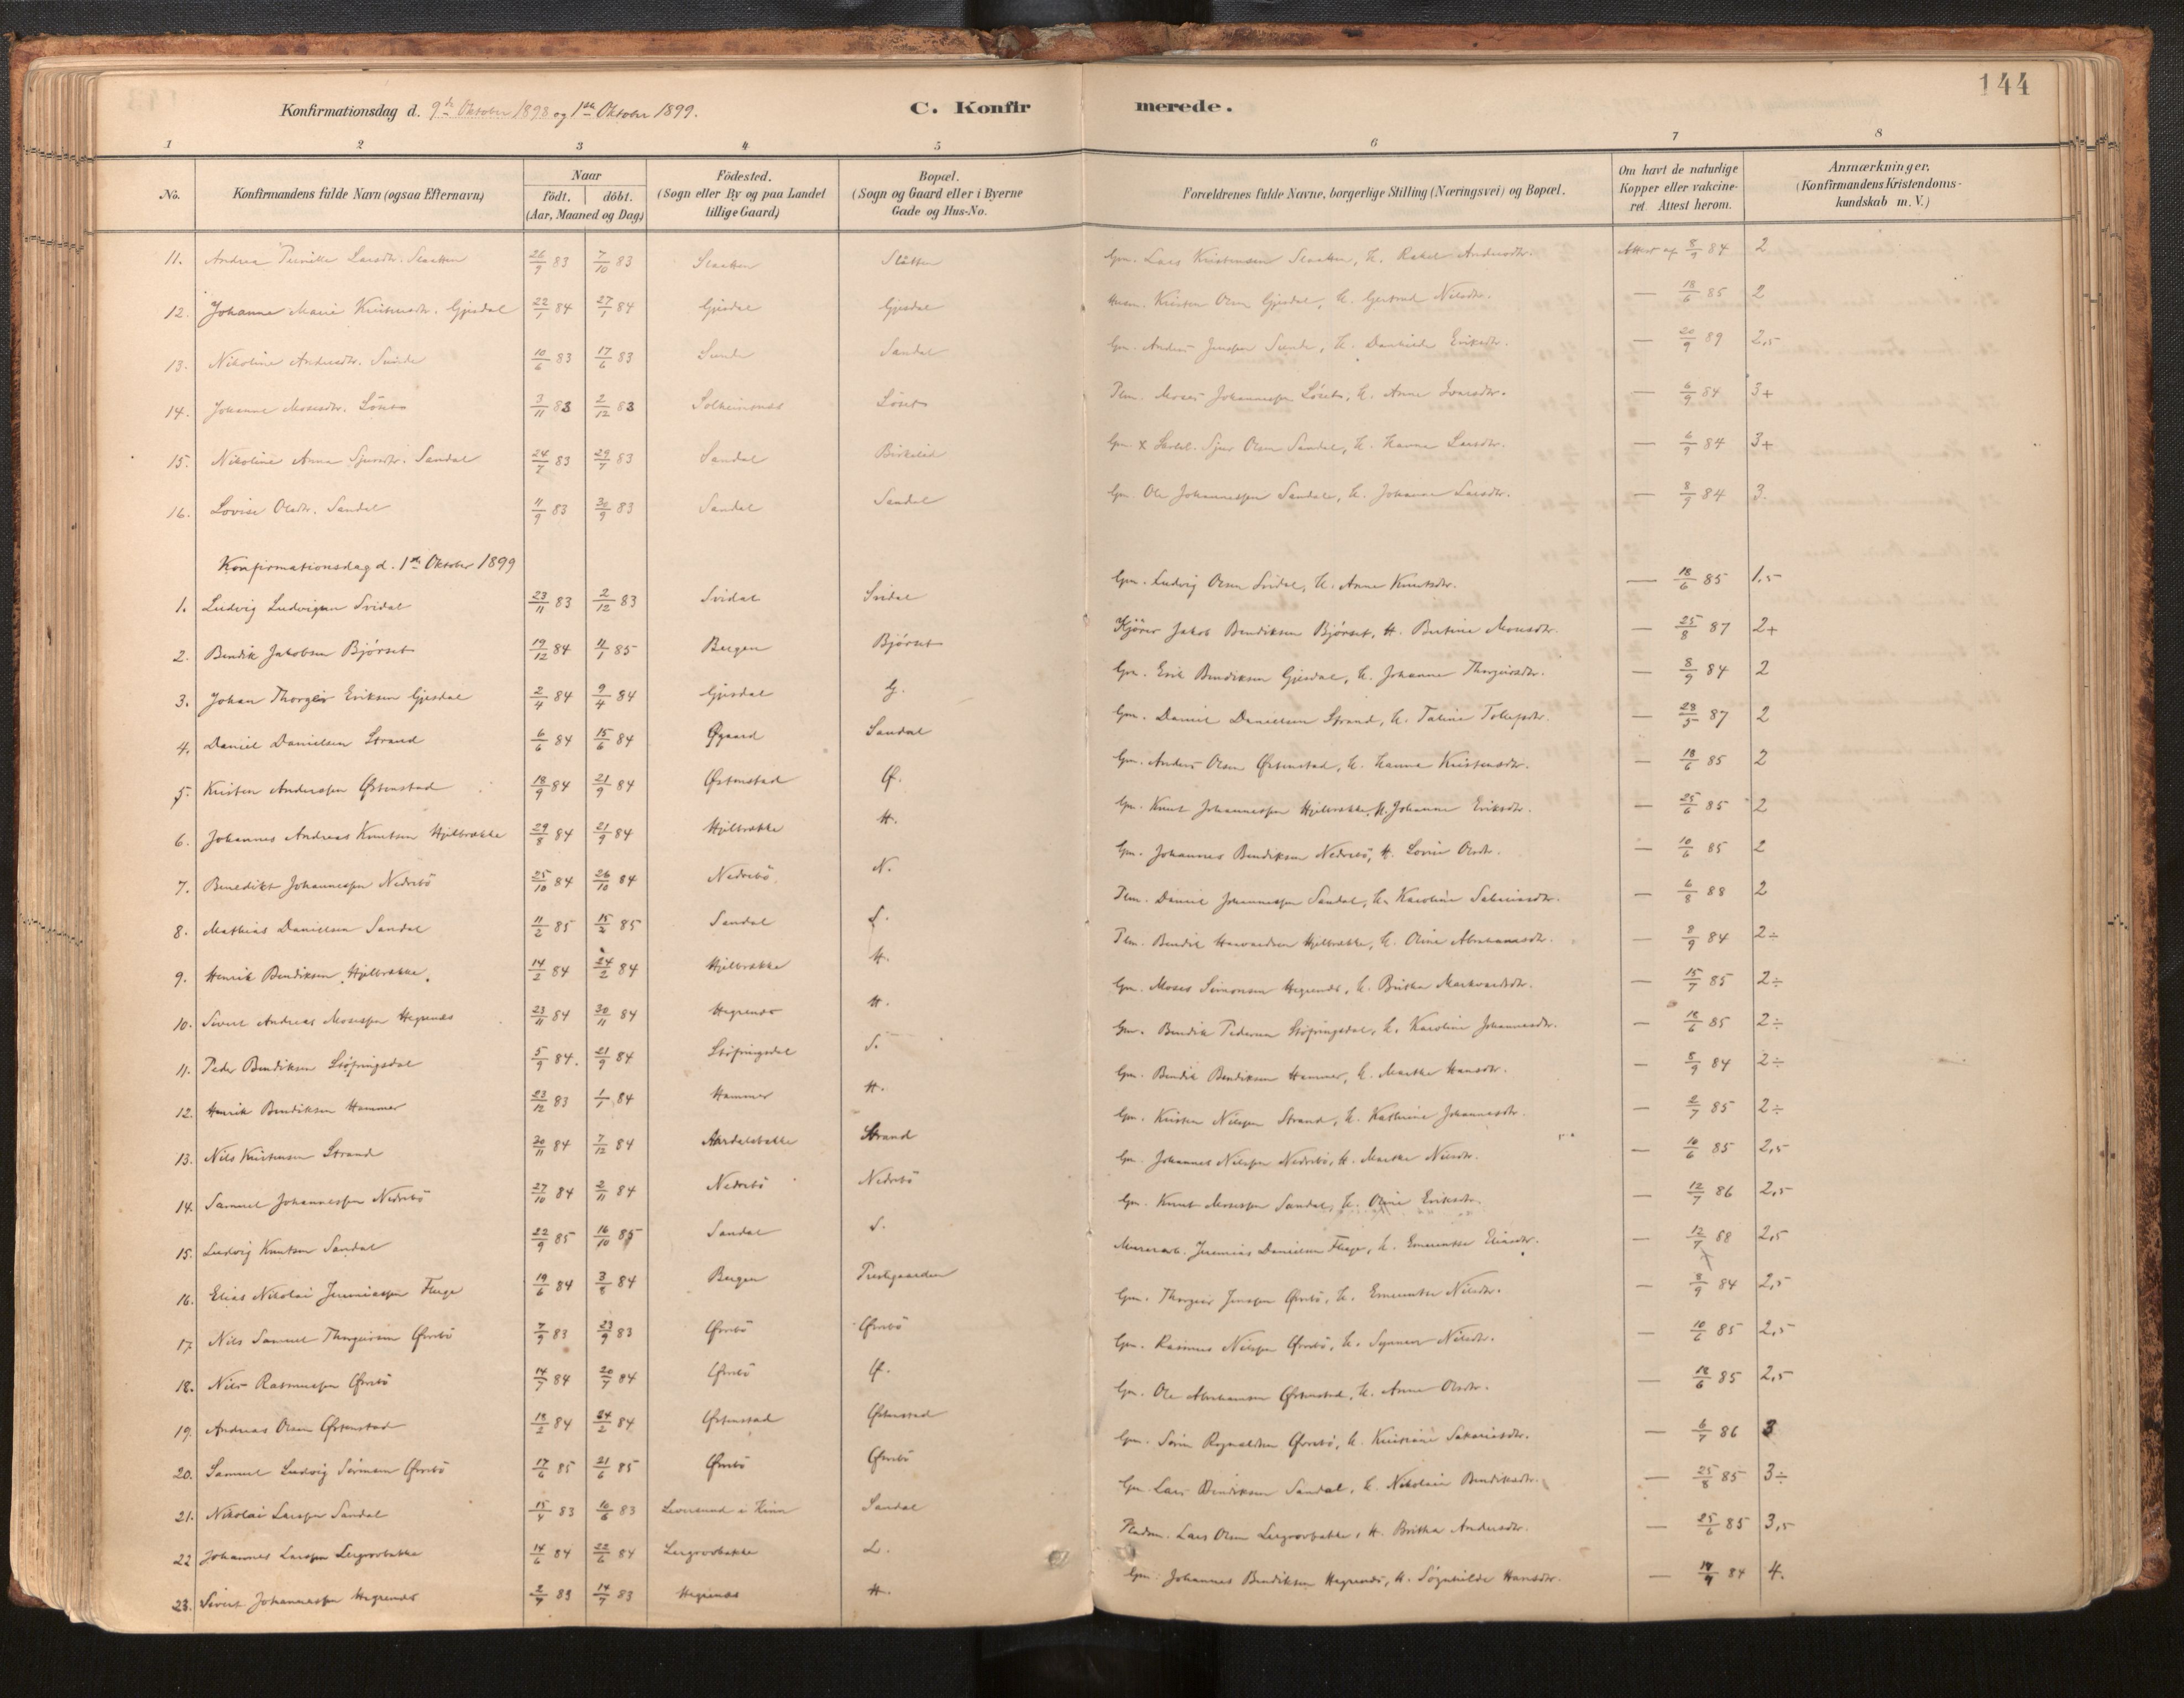 144
Konfirmationsdag d. 9de Oktober 1898 og 1ste Oktober 1899.
C. Konfirmerede.
1 2 3 4 5 6 7 8
No. | Konfirmandens fulde Navn (ogsaa Efternavn) | Naar födt. döbt. (Aar, Maaned og Dag) | Födested. (Sogn eller By og paa Landet tillige Gaard) | Bopæl. (Sogn og Gaard eller i Byerne Gade og Hus-No. | Forældrenes fulde Navne, borgerlige Stilling (Næringsvei) og Bopæl. | Om havt de naturlige Kopper eller vakcineret. Attest herom. | Anmærkninger. (Konfirmandens Kristendomskundskab m. V.)
11. Andrea Larsdtr. Slaatten 26/9 83 7/10 83 Slaatten Slåtten Gm. Lars Kristensen Slaatten, H. Rakel Andersdtr. Attest af 8/9 84 2
12. Johanne Marie Kristensdtr. Gjesdal 22/1 84 27/1 84 Gjesdal Gjesdal Husm. Kristen Olsen Gjesdal, H. Gjertrud Nilsdtr. — 18/6 85 2
13. Nikoline Andersdtr. Sunde 10/6 83 17/6 83 Sunde Sandal Gm. Anders Jensen Sunde, H. Danielle Eriksdtr. — 20/9 89 2,5
14. Johanne Mosesdtr. Löset 3/11 83 2/12 83 Solheimsnes Löset Plm. Moses Johannessen Löset, H. Anne Ivarsdtr. — 6/9 84 3+
15. Nikoline Anna Sjursdtr. Sandal 24/7 83 29/7 83 Sandal Birkelid Gm. x Sjur Olsen Sandal, H. Hanna Larsdtr. — 6/9 84 3+
16. Lovise Olsdtr. Sandal 11/9 83 /9 83 Sandal Sandal Gm. Ole Johannessen Sandal, H. Johanne Larsdtr. — 8/9 84 3.
Konfirmationsdag d. 1ste Oktober 1899
1. Ludvig Ludvigsen Svidal 23/11 83 2/12 83 Svidal Svidal Gm. Ludvig Olsen Svidal, H. Anne Knutsdtr. — 18/6 85 1,5
2. Bendik Jakobsen Bjórset 19/12 84 11/1 85 Bergen Bjórset Kjörer Jakob Bendiksen Bjórset, H. Bertine Mosesdtr. — 25/8 87 2+
3. Johan Thorgeir Eriksen Gjesdal 2/4 84 9/4 84 Gjesdal G. Gm. Erik Bendiksen Gjesdal, H. Johanne Thorgeirsdtr. — 8/9 84 2
4. Daniel Danielsen Strand 6/6 84 15/6 84 Øygaard Sandal Gm. Daniel Danielsen Strand, H. Taline Tollefsdtr. — 28/5 87 2
5. Kristen Andersen Østenstad 18/9 84 21/9 84 Østenstad Ø. Gm. Anders Olsen Østenstad, H. Hanna Kristensdtr. — 18/6 85 2
6. Johannes Andreas Knutsen Hjelbrække 29/8 84 21/9 84 Hjelbrække H. Gm. Knut Johannessen Hjelbrække, H. Johanne Eriksdtr. — 25/6 85 2
7. Benedikt Johannessen Nedrebö 25/10 84 26/10 84 Nedrebö. N. Gm. Johannes Bendiksen Nedrebö, H. Lovise Olsdtr. — 10/6 85 2
8. Mathias Danielsen Sandal 11/2 85 15/2 85 Sandal S. Plm. Daniel Johannessen Sandal, H. Karoline Sakariasdtr. — 6/8 88 2
9. Henrik Bendiksen Hjelbrække. 14/2 84 24/2 84 Hjelbrække H. Plm. Bendik Haavardsen Hjelbrække, H. Oline Abrahamsdtr. — 8/9 84 2÷
10. Sivert Andreas Mosessen Hegrenæs 23/11 84 30/11 84 Hegrenæs H. Gm. Moses Simonsen Hegrenæs, H. Britha Markvardsdtr. — 15/7 85 2÷
11. Peder Bendiksen Stöfringsdal 5/9 84. 21/9 84 Stöfringsdal S. Gm. Bendik Pedersen Stöfringsdal, H. Karoline Johannesdtr. — 18/6 85 2÷
12. Henrik Bendiksen Hammer 23/12 83 1/1 84 Hammer H. Gm. Bendik Bendiksen Hammer, H. Marthe Hansdtr. — 8/9 84 2÷
13. Nils Kristensen Strand 30/11 84 7/12 84 Aardalsbakke Strand Gm. Kristen Nilssen Strand, H. Kathrine Johannesdtr. — 2/7 85 2÷
14. Samuel Johannessen Nedrebö 27/10 84 2/11 84 Nedrebö Nedrebö Gm. Johannes Nilssen Nedrebö, H. Marthe Nilsdtr. — 10/6 85 2,5
15. Ludvig Knutsen Sandal 22/9 85 16/10 85 Sandal S. Gm. Knut Mosessen Sandal, H. Oline Eriksdtr. — 12/7 86 2,5
16. Elias Nikolai Jeremiassen Fluge 19/6 84 3/8 84 Bergen Prestgaarden Murerarb. Jeremias Danielsen Fluge, H. Emerentse Eliasdtr. — 12/7 88 2,5
17. Nils Samuel Thorgeirsen Øvrebö 7/9 83 23/9 83 Øvrebö Øvrebö Gm. Thorgeir Jenssen Øvrebö, H. Emerentse Nilsdtr. — 8/9 84 2,5
18. Nils Rasmussen Øvrebö 14/7 84 20/7 84 Øvrebö Ø. Gm. Rasmus Nilssen Øvrebö, H. Synneve Nilsdtr. — 10/6 85 2,5
19. Andreas Olsen Østenstad 18/2 84 24/2 84 Østenstad Østenstad Gm. Ole Abrahamsen Østenstad, H. Anne Olsdtr. — 18/6 85 2,5
20. Samuel Ludvig Sörensen Øvrebö 17/6 85 21/6 85 Øvrebö Øvrebö Gm. Sören Rognaldsen Øvrebö, H. Kristine Sakariasdtr. — 6/7 86 3
21. Nikolai Larssen Sandal 15/4 83 10/6 83 Leversund i Kinn Sandal Gm. Lars Bendiksen Sandal, H. Nikoline Bendiksdtr. — 25/8 85 3÷
22 Johannes Larssen Lergrovbakke 14/6 84 22/6 84 Lergrovbakke L. Pladsm. Lars Olsen Lergrovbakke, H. Britha Andersdtr. — 25/6 85 3,5
23. Sivert Johannessen Hegrenæs 2/7 83 14/7 83 Hegrenæs H. Gm. Johannes Bendiksen Hegrenæs, H. Sögnhilde Hansdtr. — 14/9 84 4.